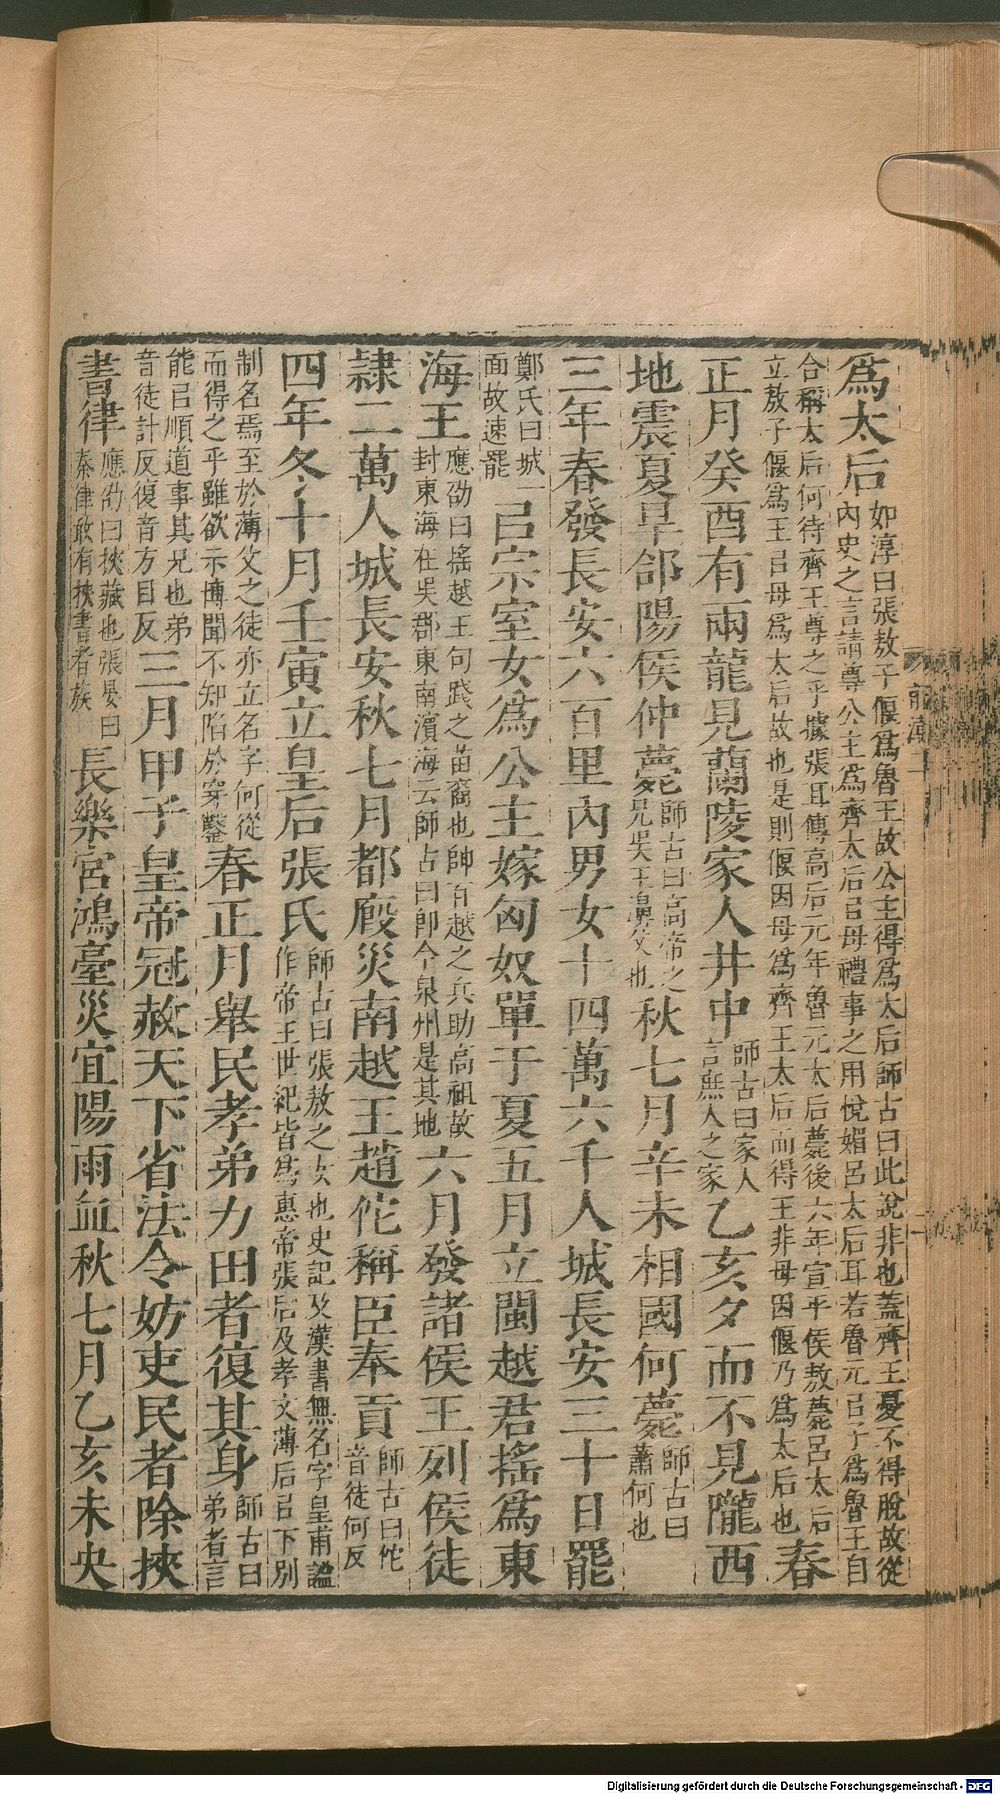 爲太后如淳曰張敖子偃爲魯王故公主得爲太后師古曰此說非也蓋齊王憂不得脫故從內史之言請尊公主爲齊太后㠯母禮事之用悅媚呂太后耳若魯元㠯子爲魯王自
合稱太后何待齊王尊之乎據張耳傳高后元年魯元太后薨後六年宣平侯敖薨呂太后立敖子偃爲王㠯母爲太后故也是則偃因母爲齊王太后而得王非母因偃乃爲太后也春
正月癸酉有兩龍見蘭陵家人井中師古曰家人言庶人之家乙亥夕而不見隴西
地震夏旱郃陽侯仲薨師古曰高帝之兄吳王濞父也秋七月辛未相國何薨師古曰蕭何也
三年春發長安六百里內男女十四萬六千人城長安三十日罷
鄭氏曰城一面故速罷㠯宗室女爲公主嫁匈奴單于夏五月立閩越君搖爲東
海王應劭曰搖越王句踐之苗裔也帥百越之兵助高祖故封東海在吳郡東南濱海云師古曰卽今泉州是其地六月發諸侯王列侯徒
隸二萬人城長安秋七月都廄災南越王趙佗稱臣奉貢師古曰佗音徒何反
四年冬十月壬寅立皇后張氏師古曰張敖之女也史記及漢書無名字皇甫謐作帝王世紀皆爲惠帝張后及孝文薄后㠯下別
制名焉至於薄父之徒亦立名字何從而得之乎雖欲示博聞不知陷於穿鑿春正月舉民孝弟力田者復其身師古曰弟者言
能㠯順道事其兄也弟音徒計反復音方目反三月甲子皇帝冠赦天下省法令妨吏民者除挾
書律應劭曰挾藏也張晏曰秦律敢有挾書者族長樂宮鴻臺災宜陽雨血秋七月乙亥未央
Digitalisierung gefördert durch die Deutsche Forschungsgemeinschaft - DFG